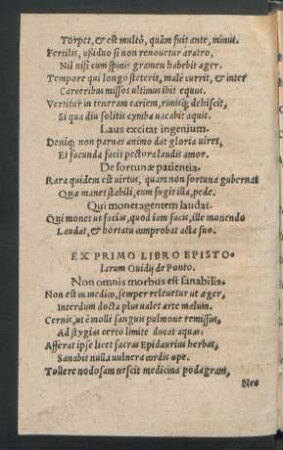 Torpet, & est multò, quàm fuit ante, minus.
Fertilis, assiduo si non renouetur aratro,
Nil nisi cum spinis gramen habebit ager.
Tempore qui longo steterit, malè currit, & inter
Carceribus missos ultimus ibit equos.
Vertitur in teneram cariem, rimisq; dehiscit,
Si qua diu solitis cymba uacabit aquis.
Laus excitat ingenium.
Deniq; non paruas animo dat gloria uires,
Et facunda facit pectora laudis amor.
De fortunæ patientia.
Rara quidem est uirtus, quam non fortuna gubernat
Quæ manet stabili, cum fugit illa, pede.
Qui monet agentem laudat.
Qui monet ut facias, quod iam facis, ille monendo
Laudat, & hortatu comprobat acta suo.
EX PRIMO LIBRO EPISTO-
larum Ouidij de Ponto.
Non omnis morbus est sanabilis.
Non est in medico, semper releuetur ut æger,
Interdum docta plus ualet arte malum.
Cernis, ut è molli sanguis pulmone remissus,
Ad stygias certo limite ducat aquas.
Afferat ipse licet sacras Epidaurius herbas,
Sanabit nulla uulnera cordis ope.
Tollere nodosam nescit medicina podagram,
Nec